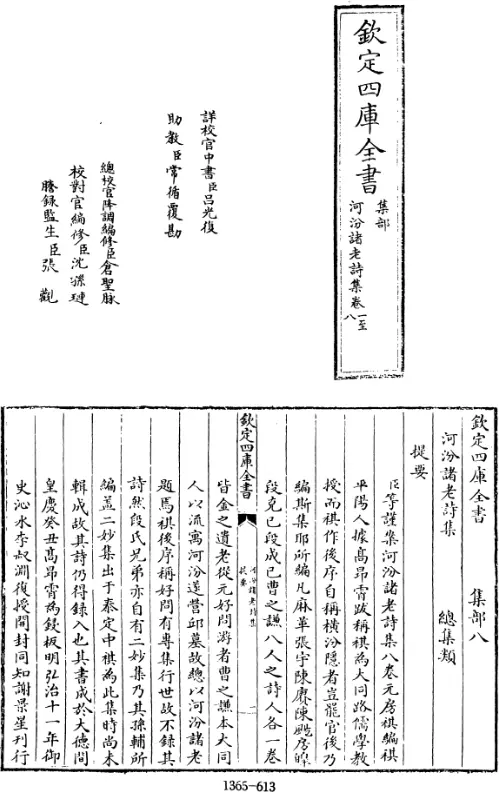 欽定四庫全書
集部
河汾諸老詩集卷一至八
詳校官中書臣呂光復
助教臣常循覆勘
總校官降調編修臣倉聖脉
校對官編修臣沈孫璉
謄錄監生臣張觀
欽定四庫全書 集部八
河汾諸老詩集 總集類
提要
臣等謹案河汾諸老詩集八卷元房祺編祺
平陽人據高昂霄跋稱祺為大同路儒學教
授而祺作後序自稱横汾隱者豈罷官後乃
編斯集耶所編凡麻革張宇陳賡陳颺房皥
段克己段成己曹之謙八人之詩人各一卷
欽定四庫全書
河汾諸老詩集
提要
一
皆金之遺老從元好問游者曹之謙本大同
人以流寓河汾遂營邱墓故總以河汾諸老
題焉祺後序稱好問有專集行世故不録其
詩然段氏兄弟亦自有二妙集乃其孫輔所
編盖二妙集出于泰定中祺為此集時尚未
輯成故其詩仍得録入也其書成於大德間
皇慶癸丑高昂霄為鋟板明弘治十一年御
史沁水李叔淵復授開封同知謝景星刊行
1365-613